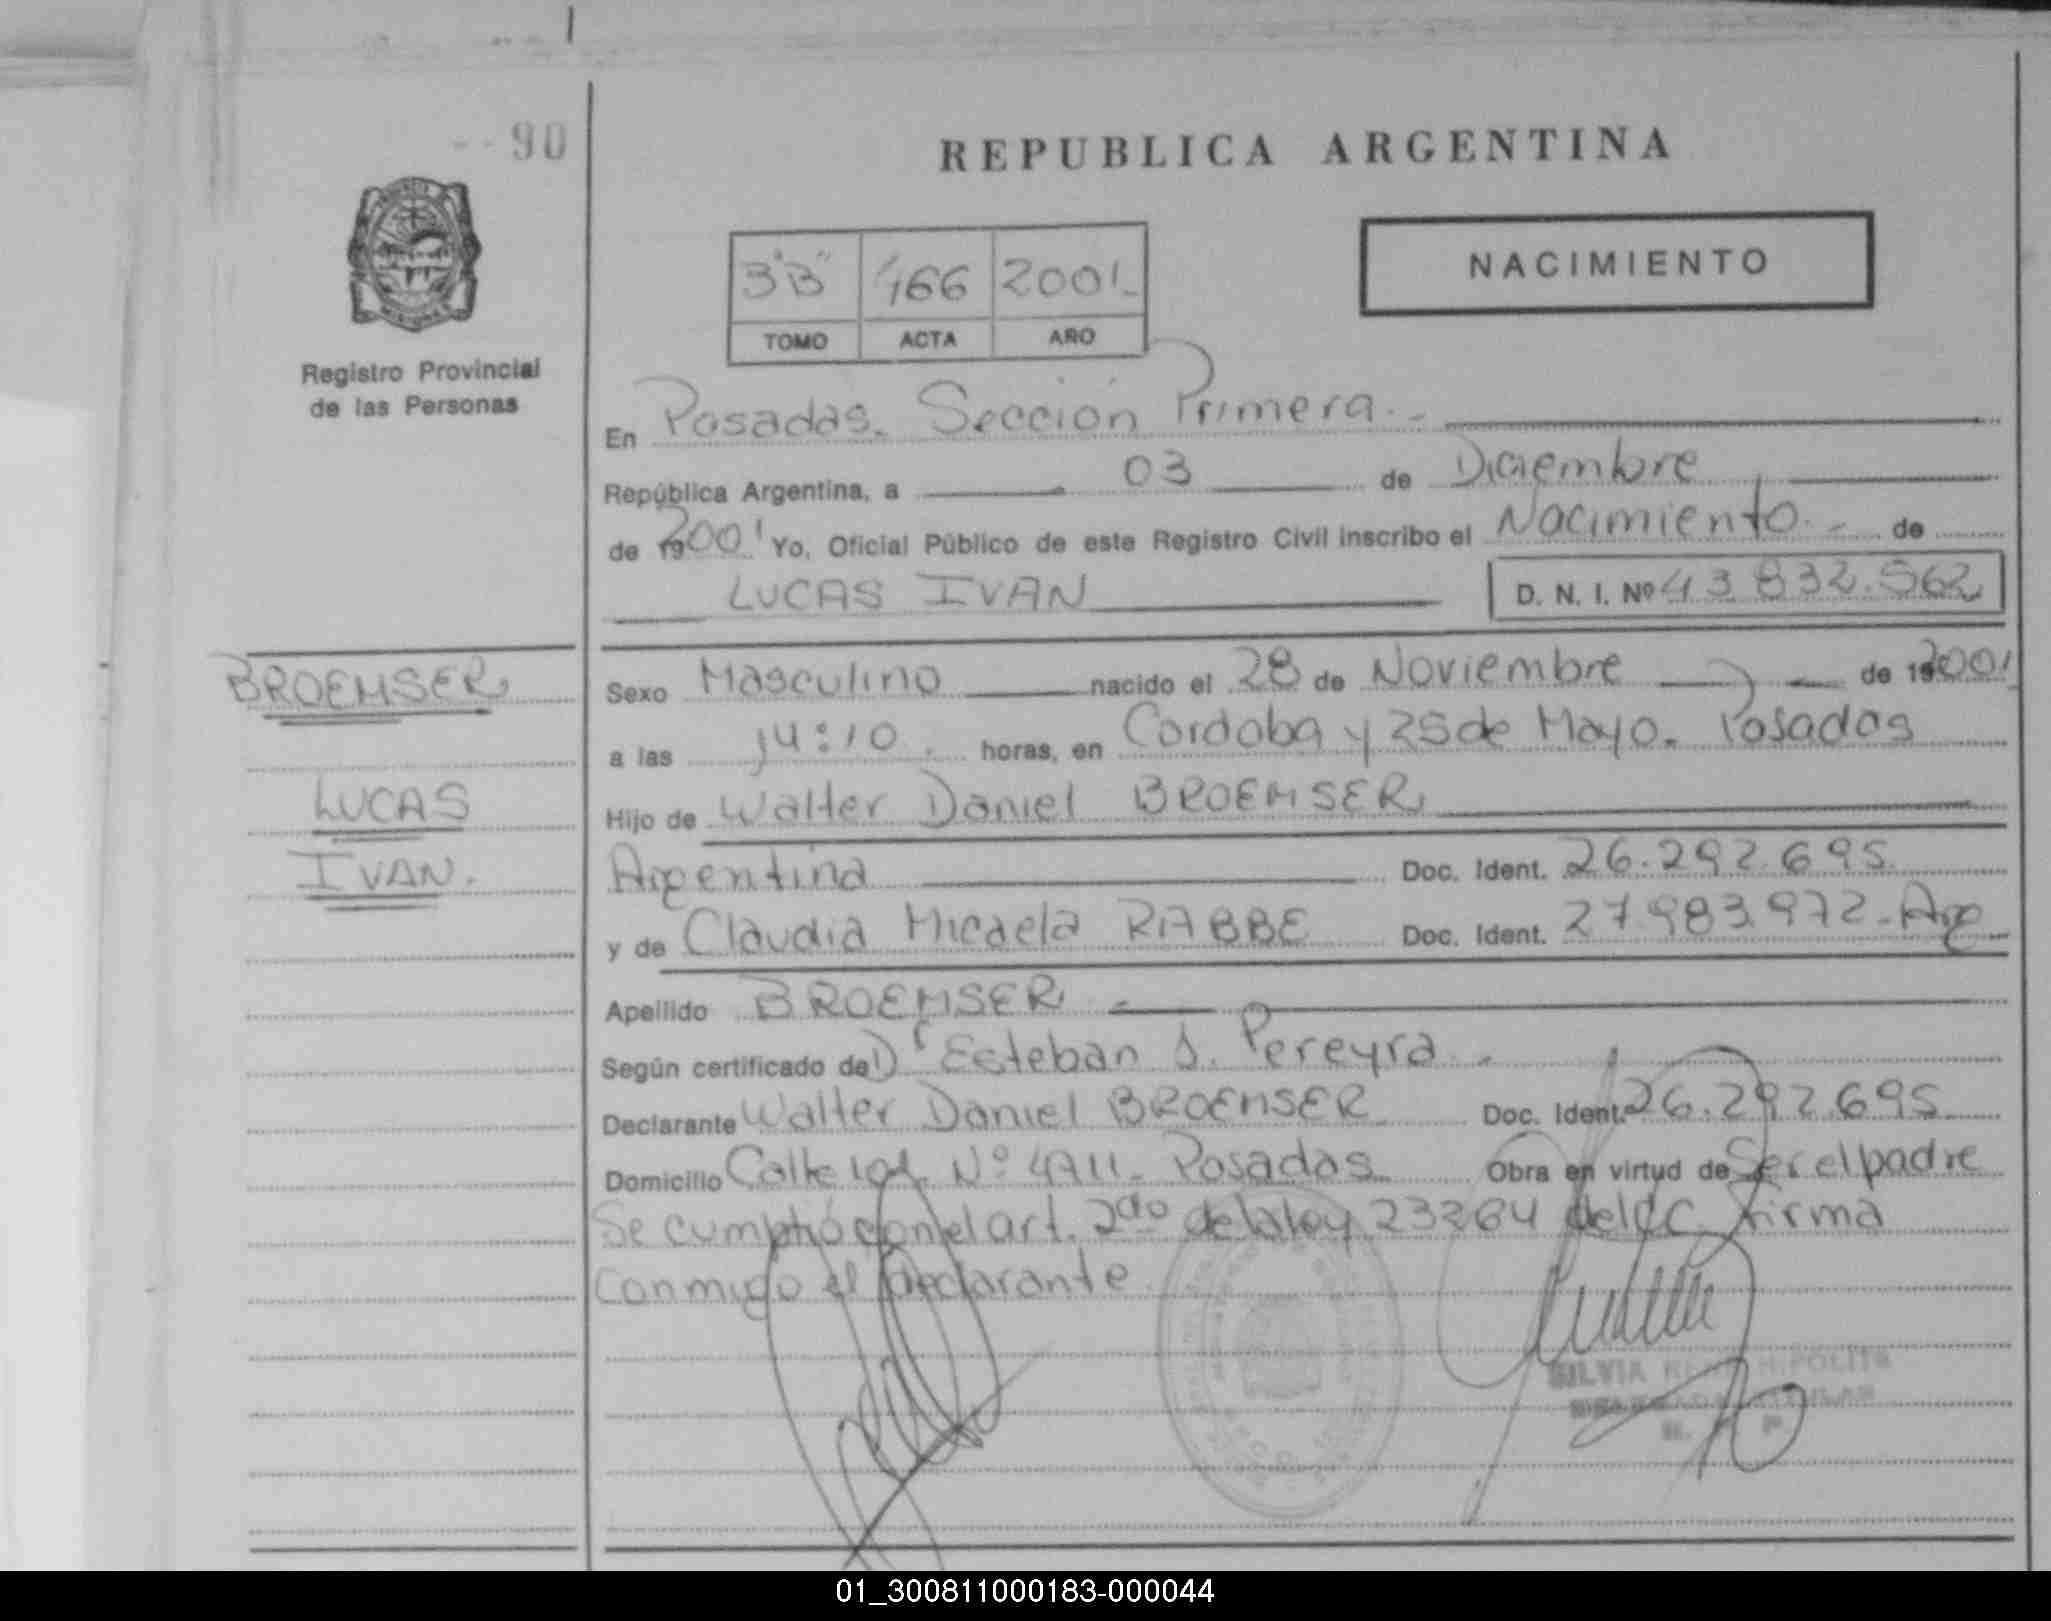 90
REPUBLICA ARGENTINA
3"B" 166 2001
TOMO ACTA AÑO
NACIMIENTO
Registro Provincial
de las Personas
En Posadas. Sección Primera.-
República Argentina, a 03 de Diciembre
de 2001 Yo, Oficial Público de este Registro Civil inscribo el Nacimiento.- de
LUCAS IVAN D. N. I. Nº 43 832.562
BROEMSER
LUCAS
IVAN.
Sexo Masculino nacido el 28 de Noviembre de 2001
a las 14:10. horas, en Cordoba y 25 de Mayo. Posadas
Hijo de Walter Daniel BROEMSER
Argentina Doc. Ident. 26.292.695
y de Claudia Micaela RABBE Doc. Ident. 27.983.972-Arg
Apellido BROEMSER
Según certificado de Dr Esteban J. Pereyra.
Declarante Walter Daniel BROEMSER Doc. Ident. 26.292.695
Domicilio Calle Nº Posadas Obra en virtud de Ser el padre
Se cumplió con el art. 2do de la ley 23264 del CC. Firma
Conmigo el declarante
SILVIA HIPOLITE
01_300811000183-000044